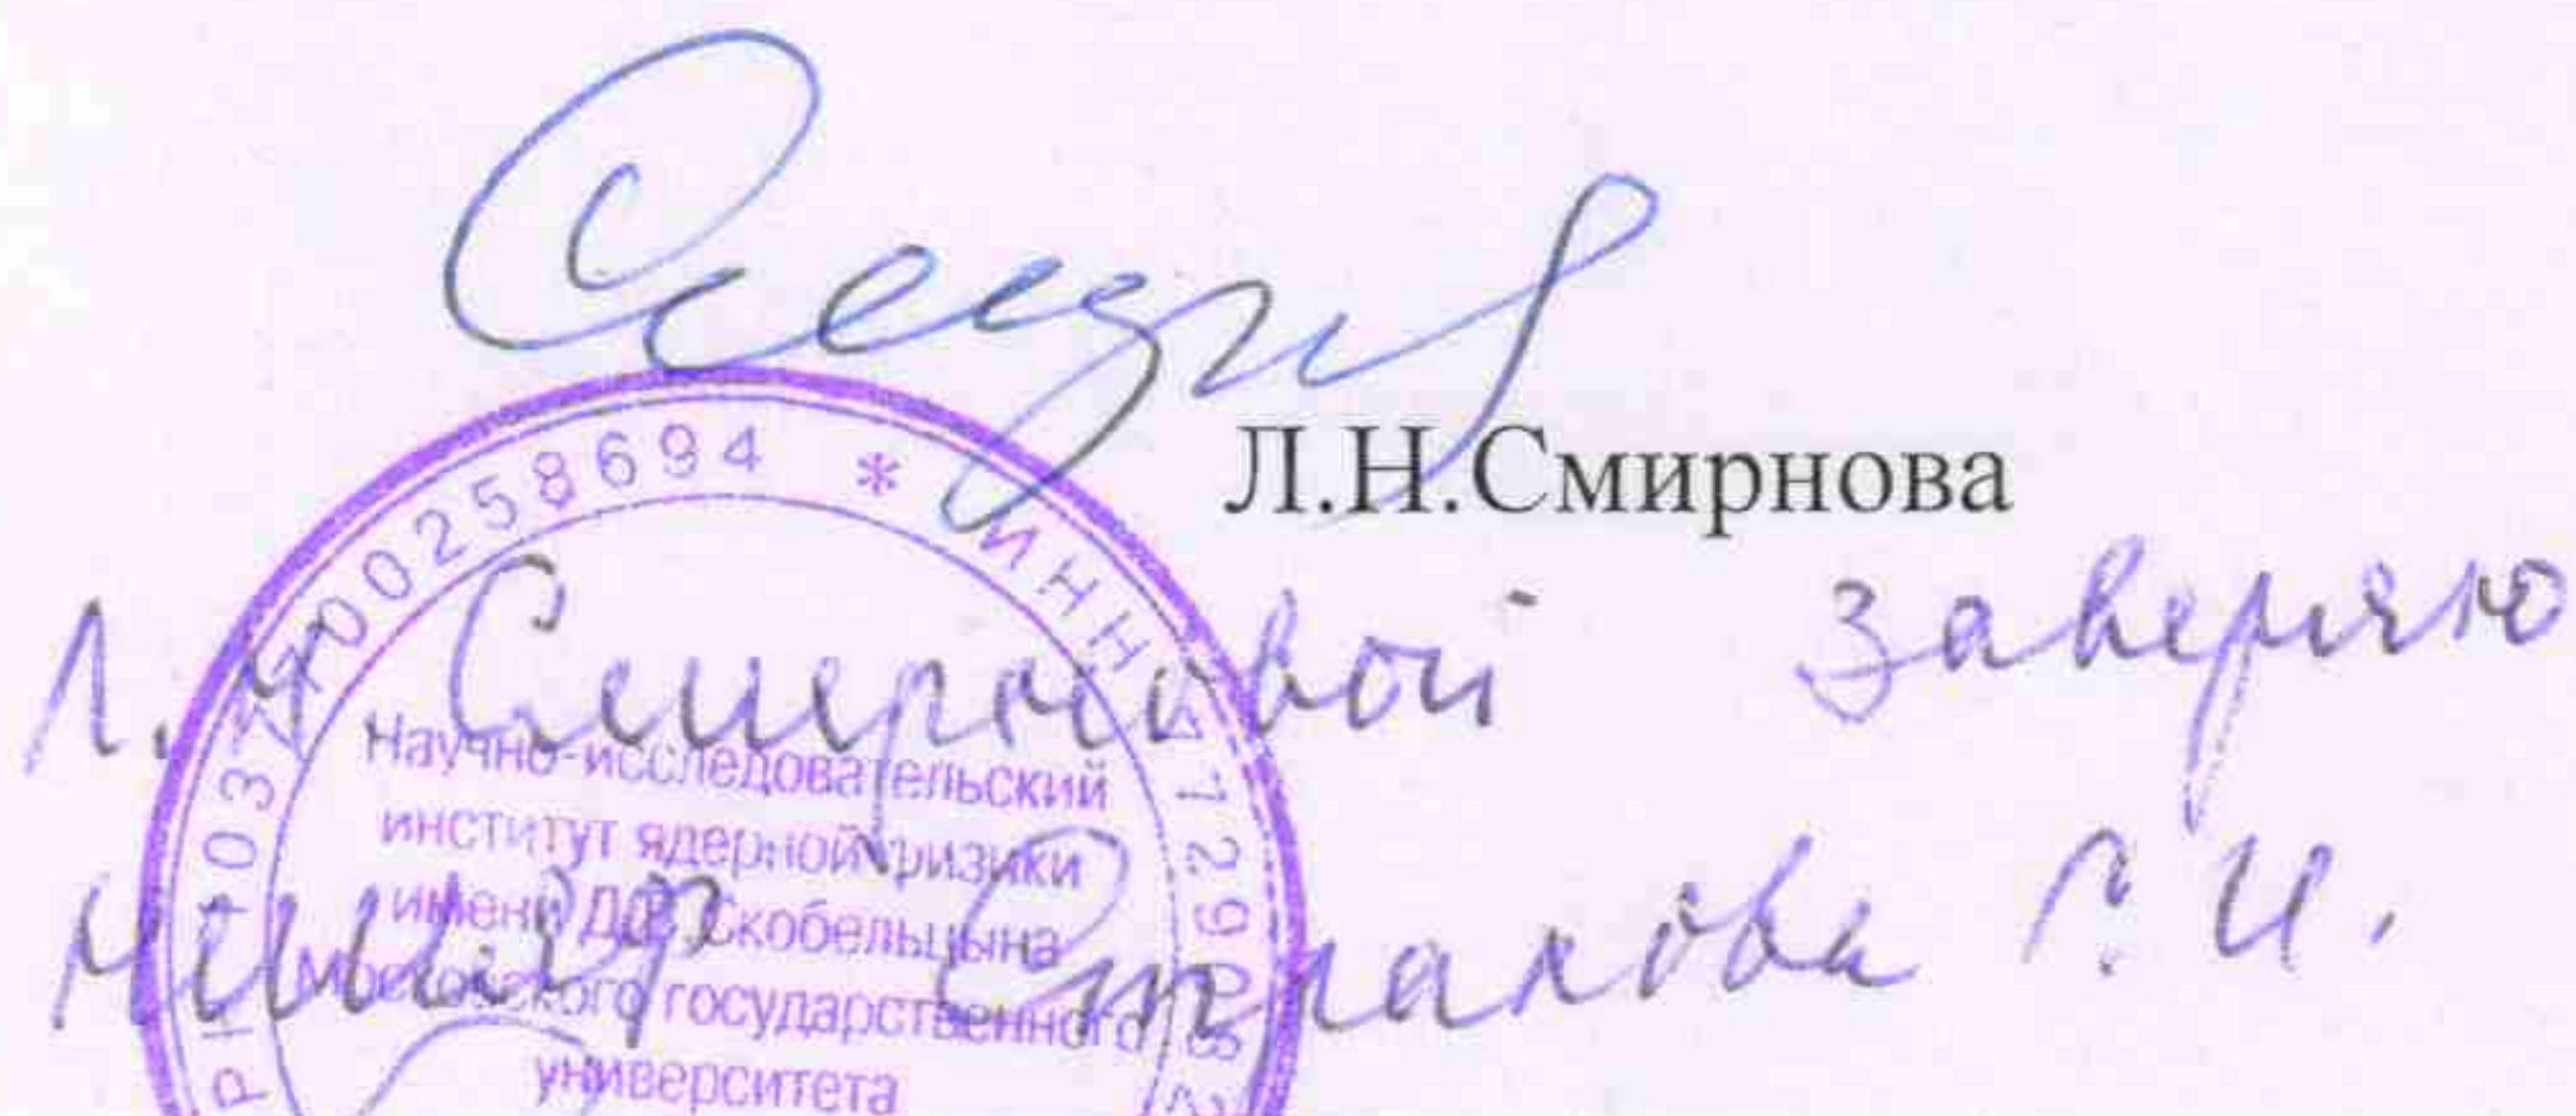 Л.Н.Смирнова
Л. Н. Смирновой заверяю
Страхова С. И.
Научно-исследовательский
институт ядерной физики
имени Д.В.Скобельцына
Московского государственного
университета
1037700258694 * ИНН 77290823